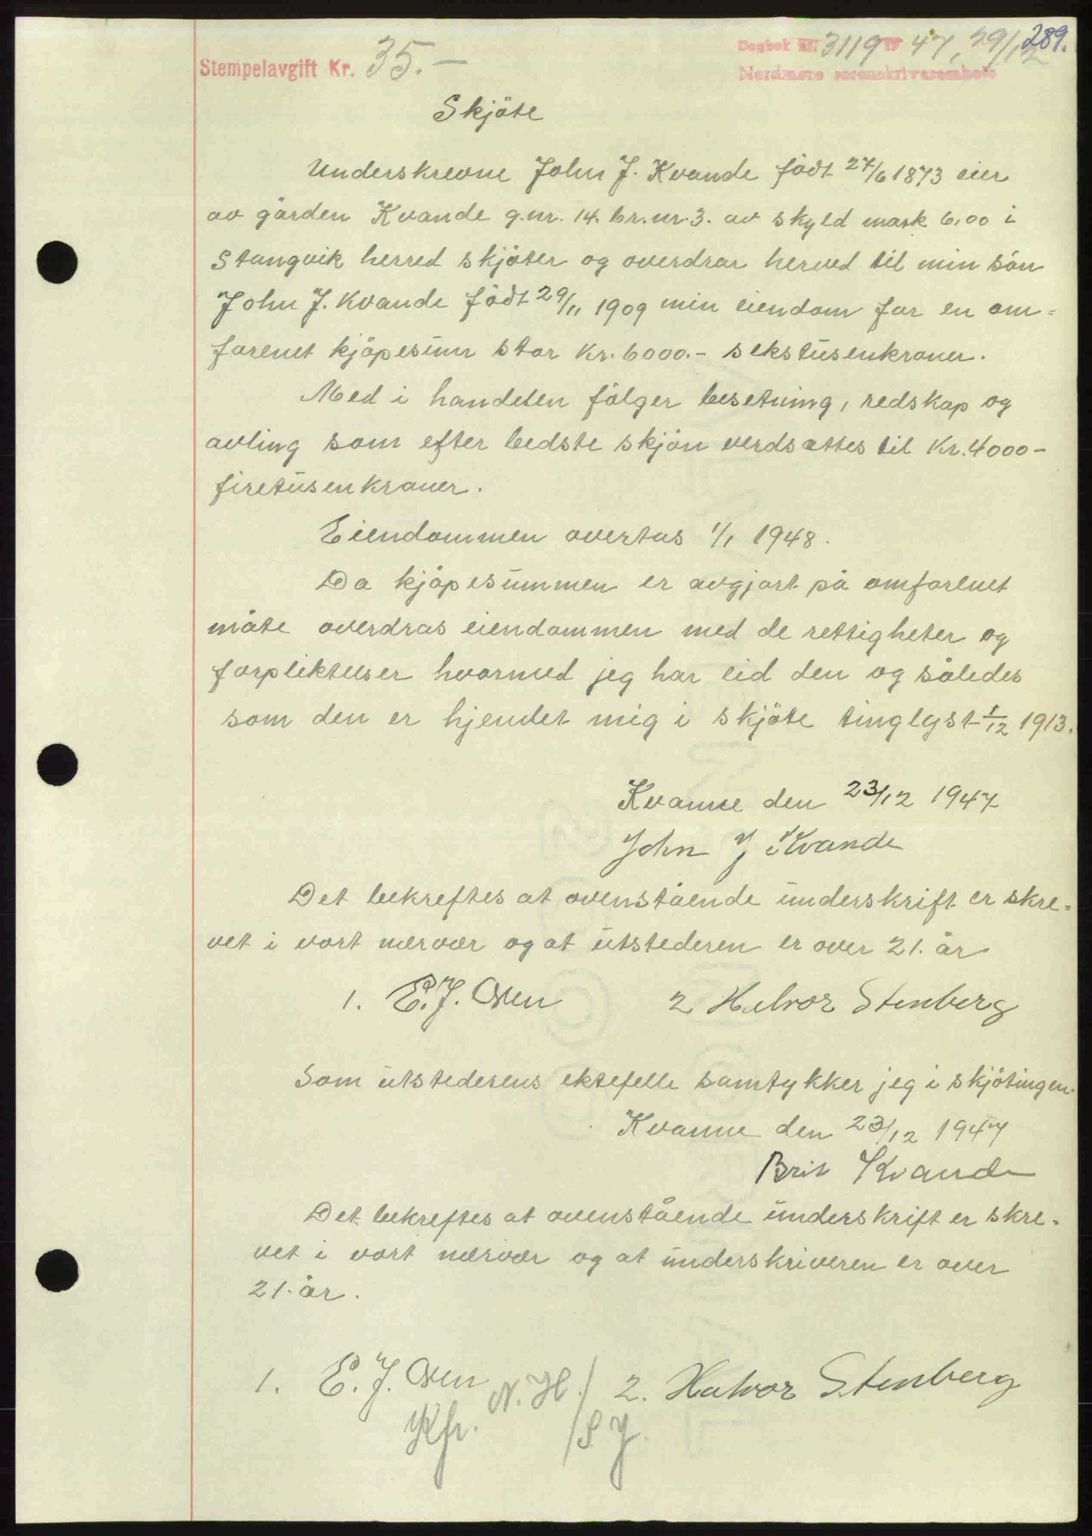 289.
Stempelavgift Kr. 35.—
Dagbok nr. 3119 19 47, 29/12
Nordmøre sorenskriverembete
Skjöte
Underskrevne John J. Kvande födt 27/6 1873 eier
av gården Kvande g.nr. 14. br.nr. 3. av skyld mark 6,00 i
Stangvik herred skjöter og overdrar herved til min sön
John J. Kvande födt 29/11 1909 min eiendom for en om=
forenet kjöpesum stor Kr. 6000.- sekstusenkroner.
Med i handelen fölger besetning, redskap og
avling som efter bedste skjön verdsættes til Kr. 4000-
firetusenkroner.
Eiendommen overtas 1/1 1948.
Da kjöpesummen er avgjort på omforenet
måte overdras eiendommen med de rettigheter og
forpliktelser hvormed jeg har eid den og således
som den er hjemlet mig i skjöte tinglyst 1/12 1913.
Kvanne den 23/12 1947
John J Kvande
Det bekreftes at ovenstående underskrift er skre=
vet i vort nærvær og at utstederen er over 21. år
1. E. J. Oven 2 Halvor Stenberg
Som utstederens ektefelle samtykker jeg i skjötingen.
Kvanne den 23/12 1947
Brit Kvande
Det bekreftes at ovenstående underskrift er skre=
vet i vort nærvær og at underskriveren er over
21. år.
1. E. J. Oven 2. Halvor Stenberg
Kfr. N. H./
/S J.